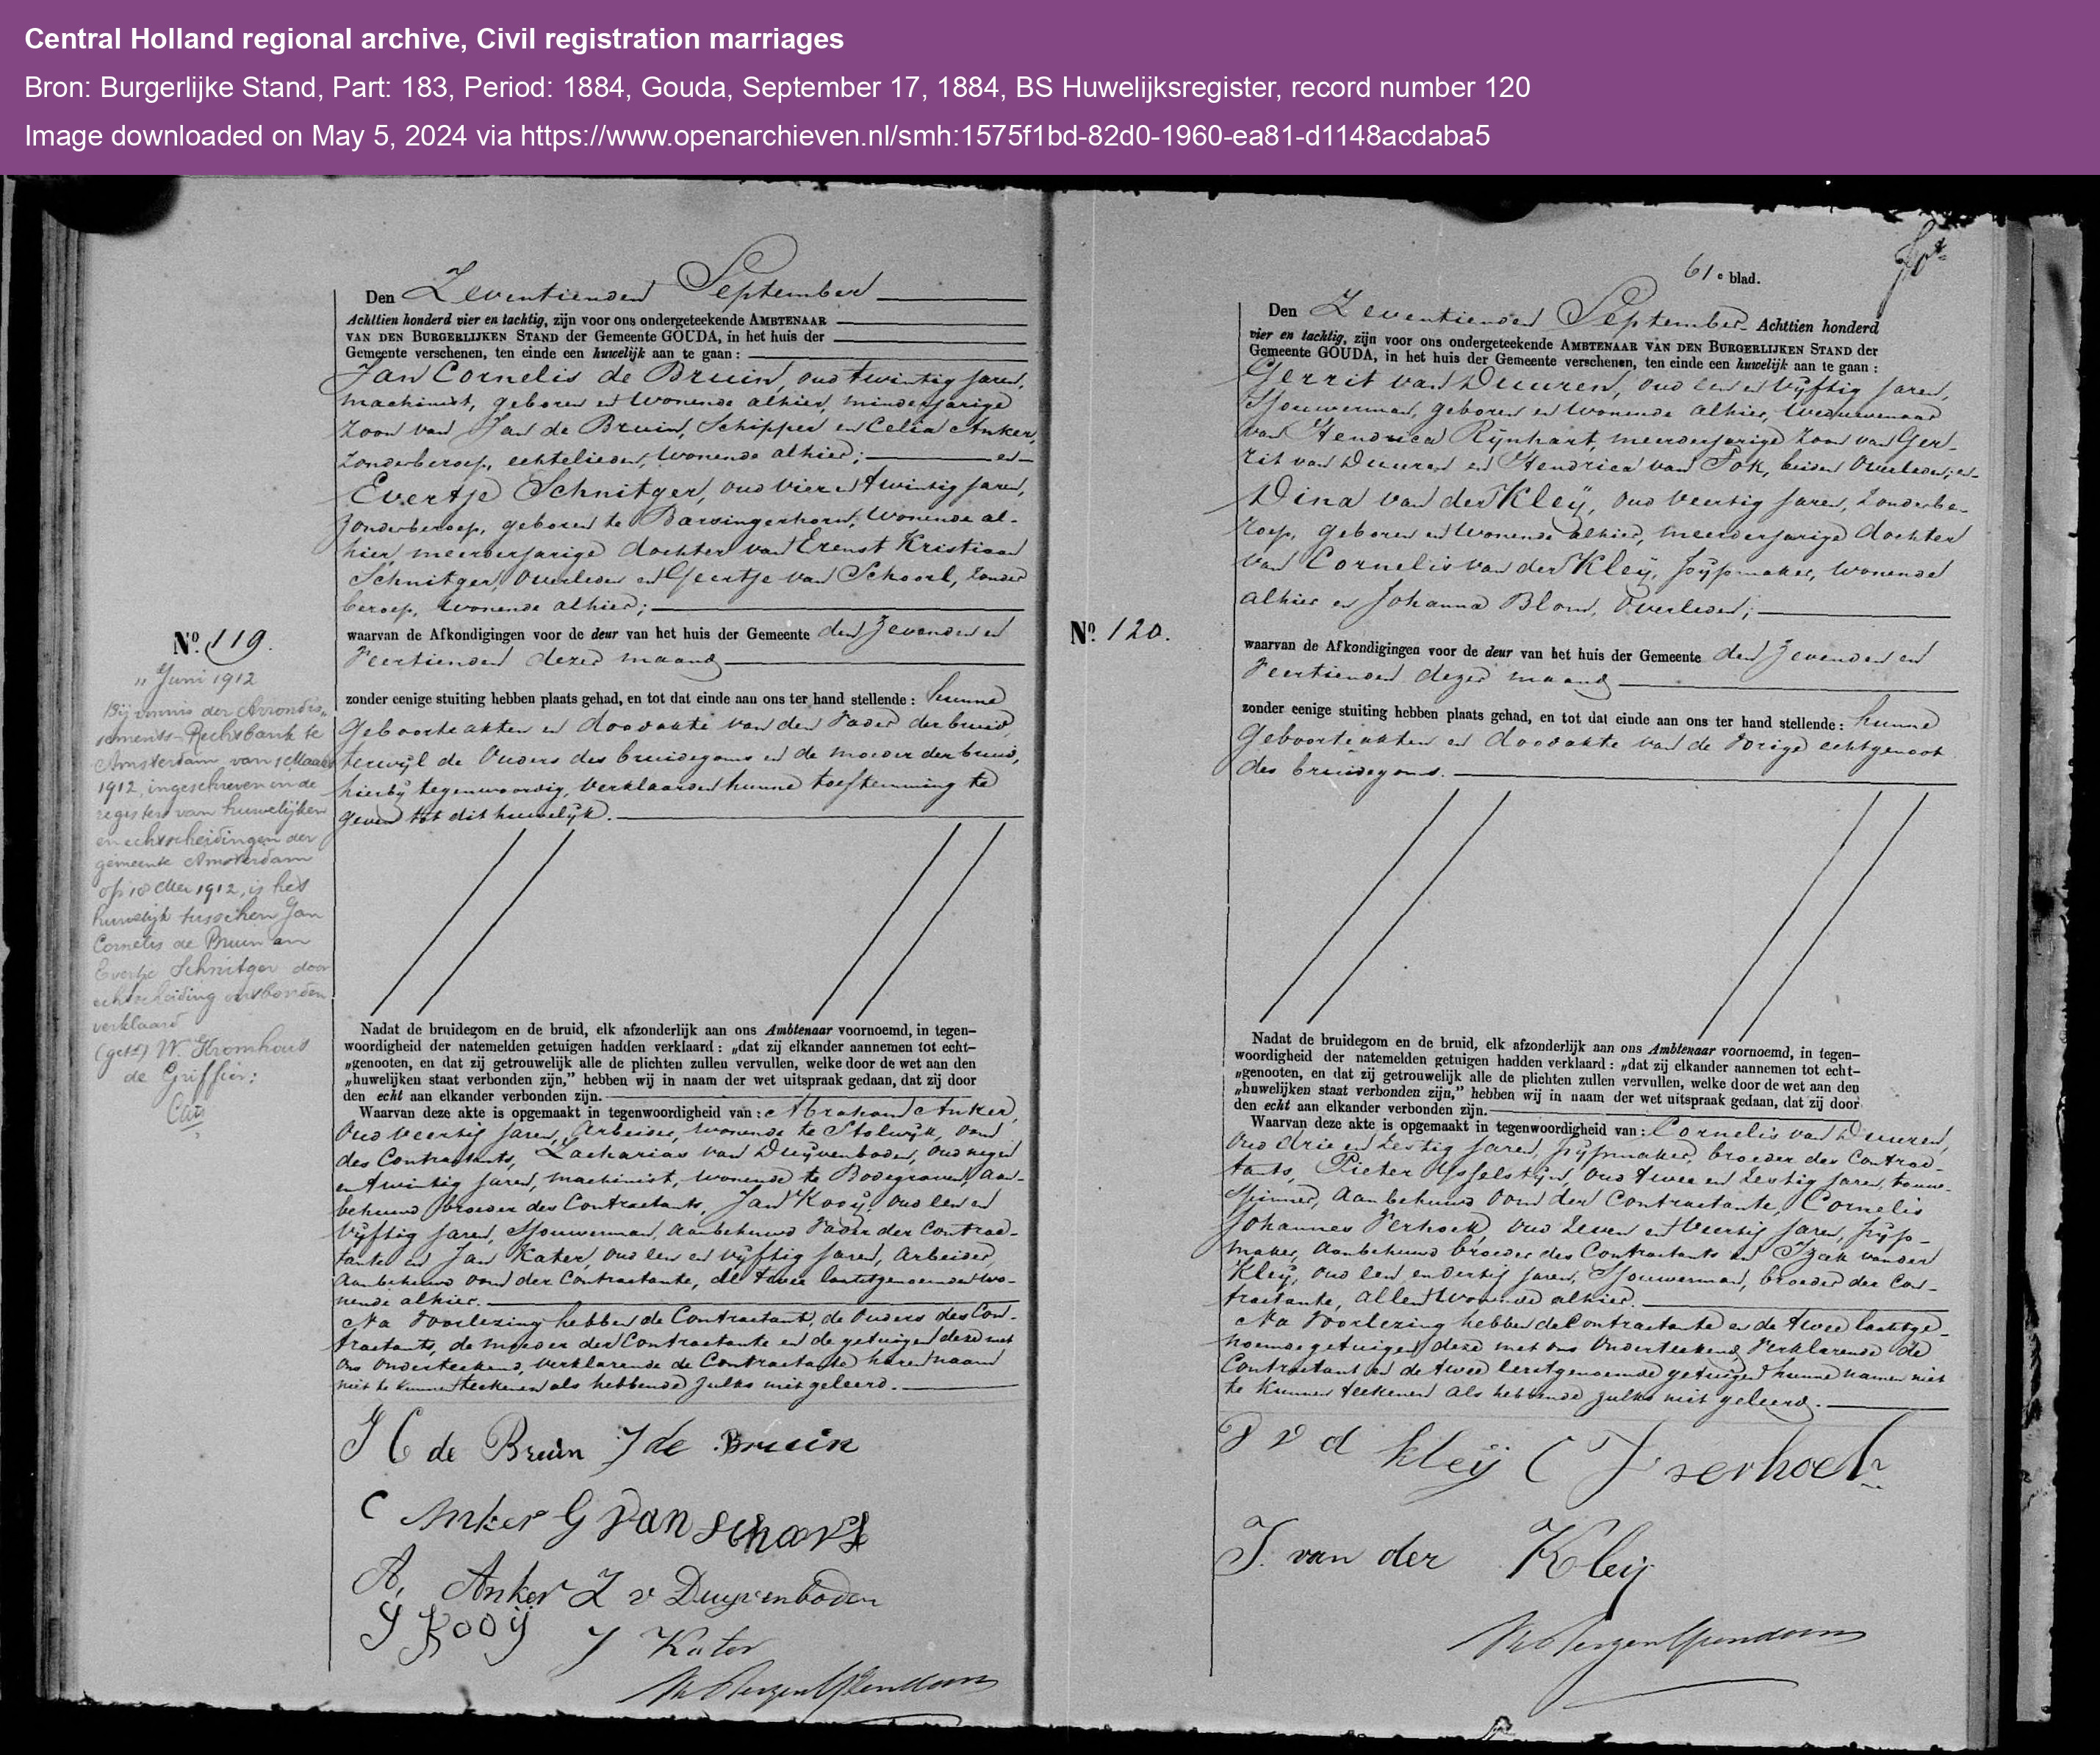 Central Holland regional archive, Civil registration marriages
Bron: Burgerlijke Stand, Part: 183, Period: 1884, Gouda, September 17, 1884, BS Huwelijksregister, record number 120
Image downloaded on May 5, 2024 via https://www.openarchieven.nl/smh:1575f1bd-82d0-1960-ea81-d1148acdaba5
Den Zeventienden September
Achttien honderd vier en tachtig, zijn voor ons ondergeteekende AMBTENAAR
VAN DEN BURGERLIJKEN STAND der Gemeente GOUDA, in het huis der
Gemeente verschenen, ten einde een huwelijk aan te gaan:
Jan Cornelis de Bruin, oud twintig jaren,
machinist, geboren en wonende alhier, minderjarige
zoon van Jan de Bruin, Schipper en Celia Anker,
zonder beroep, echtelieden, wonende alhier; en
Evertje Schnitger, oud vier en twintig jaren,
zonder beroep, geboren te Barsingerhorn, wonende al-
hier meerderjarige dochter van Erenst Kristiaan
Schnitger, overleden en Geertje van Schoorl, zonder
beroep, wonende alhier;
No. 119.
waarvan de Afkondigingen voor de deur van het huis der Gemeente den Zevenden en
Veertienden dezer maand
zonder eenige stuiting hebben plaats gehad, en tot dat einde aan ons ter hand stellende: hunne
geboorteakten en doodakte van den Vader der bruid,
terwijl de Ouders des bruidegoms en de moeder der bruid,
hierbij tegenwoordig, verklaarden hunne toestemming te
geven tot dit huwelijk.
" Juni 1912
Bij vonnis der Arrondis,,
sements-Rechtbank te
Amsterdam van 1 Maart
1912, ingeschreven in de
registers van huwelijken
en echtscheidingen der
gemeente Amsterdam
op 18 Mei 1912, is het
huwelijk tusschen Jan
Cornelis de Bruin en
Evertje Schnitger door
echtscheiding ontbonden
verklaard
(get.) W. Kromhout
de Griffier:
Nadat de bruidegom en de bruid, elk afzonderlijk aan ons Ambtenaar voornoemd, in tegen-
woordigheid der natemelden getuigen hadden verklaard: „dat zij elkander aannemen tot echt-
„genooten, en dat zij getrouwelijk alle de plichten zullen vervullen, welke door de wet aan den
„huwelijken staat verbonden zijn,” hebben wij in naam der wet uitspraak gedaan, dat zij door
den echt aan elkander verbonden zijn.
Waarvan deze akte is opgemaakt in tegenwoordigheid van: Abraham Anker,
oud veertig jaren, Arbeider, wonende te Stolwijk, oom
des Contractants, Zacharias van Duijvenboden, oud negen
en twintig jaren, machinist, wonende te Bodegraven, aan-
behuwd broeder des Contractants, Jan Kooij, oud een en
vijftig jaren, Sjouwerman, aanbehuwd Vader der Contrac-
tante en Jan Kater, oud een en vijftig jaren, Arbeider,
aanbehuwd oom der Contractante, de twee laatstgenoemden wo-
nende alhier.
Na Voorlezing hebben de Contractant, de Ouders des Con-
tractants, de moeder der Contractante en de getuigen deze met
ons onderteekend, verklarende de Contractante haren naam
niet te kunnen teekenen als hebbende zulks niet geleerd.
J C de Bruin J de Bruin
C Anker G van schoorl
A. Anker Z v Duyvenboden
J Kooij
J Kater
61e blad.
Den Zeventienden September Achttien honderd
vier en tachtig, zijn voor ons ondergeteekende AMBTENAAR VAN DEN BURGERLIJKEN STAND der
Gemeente GOUDA, in het huis der Gemeente verschenen, ten einde een huwelijk aan te gaan:
Gerrit van Duuren, oud een en vijftig jaren,
Sjouwerman, geboren en wonende alhier, Weduwenaar
van Hendrica Rijnhart, meerderjarige zoon van Ger-
rit van Duuren en Hendrica van Tok, beiden overleden; en
Dina van der Kleij, oud veertig jaren, zonder be-
roep, geboren en wonende alhier, meerderjarige dochter
van Cornelis van der Kleij, pijpmaker, wonende
alhier en Johanna Blom, overleden;
No. 120.
waarvan de Afkondigingen voor de deur van het huis der Gemeente den Zevenden en
Veertienden dezer maand
zonder eenige stuiting hebben plaats gehad, en tot dat einde aan ons ter hand stellende: hunne
geboorteakten en doodakte van de vorige echtgenoot
des bruidegoms.
Nadat de bruidegom en de bruid, elk afzonderlijk aan ons Ambtenaar voornoemd, in tegen-
woordigheid der natemelden getuigen hadden verklaard: „dat zij elkander aannemen tot echt-
„genooten, en dat zij getrouwelijk alle de plichten zullen vervullen, welke door de wet aan den
„huwelijken staat verbonden zijn,” hebben wij in naam der wet uitspraak gedaan, dat zij door
den echt aan elkander verbonden zijn.
Waarvan deze akte is opgemaakt in tegenwoordigheid van: Cornelis van Duuren,
oud drie en zestig jaren, pijpmaker, broeder des Contrac-
tants, Pieter IJsselstijn, oud twee en zestig jaren, touw-
spinner, aanbehuwd oom der Contractante, Cornelis
Johannes Verhoek, oud zeven en veertig jaren, pijp-
maker, aanbehuwd broeder des Contractants en Izak van der
Kleij, oud een en dertig jaren, Sjouwerman, broeder der Con-
tractante, allen wonende alhier.
Na Voorlezing hebben de Contractante en de twee laatstge-
noemde getuigen deze met ons onderteekend, Verklarende de
Contractant en de twee eerstgenoemde getuigen hunne namen niet
te kunnen teekenen als hebbende zulks niet geleerd.
D v d kleij C J verhoek
J. van der Kleij